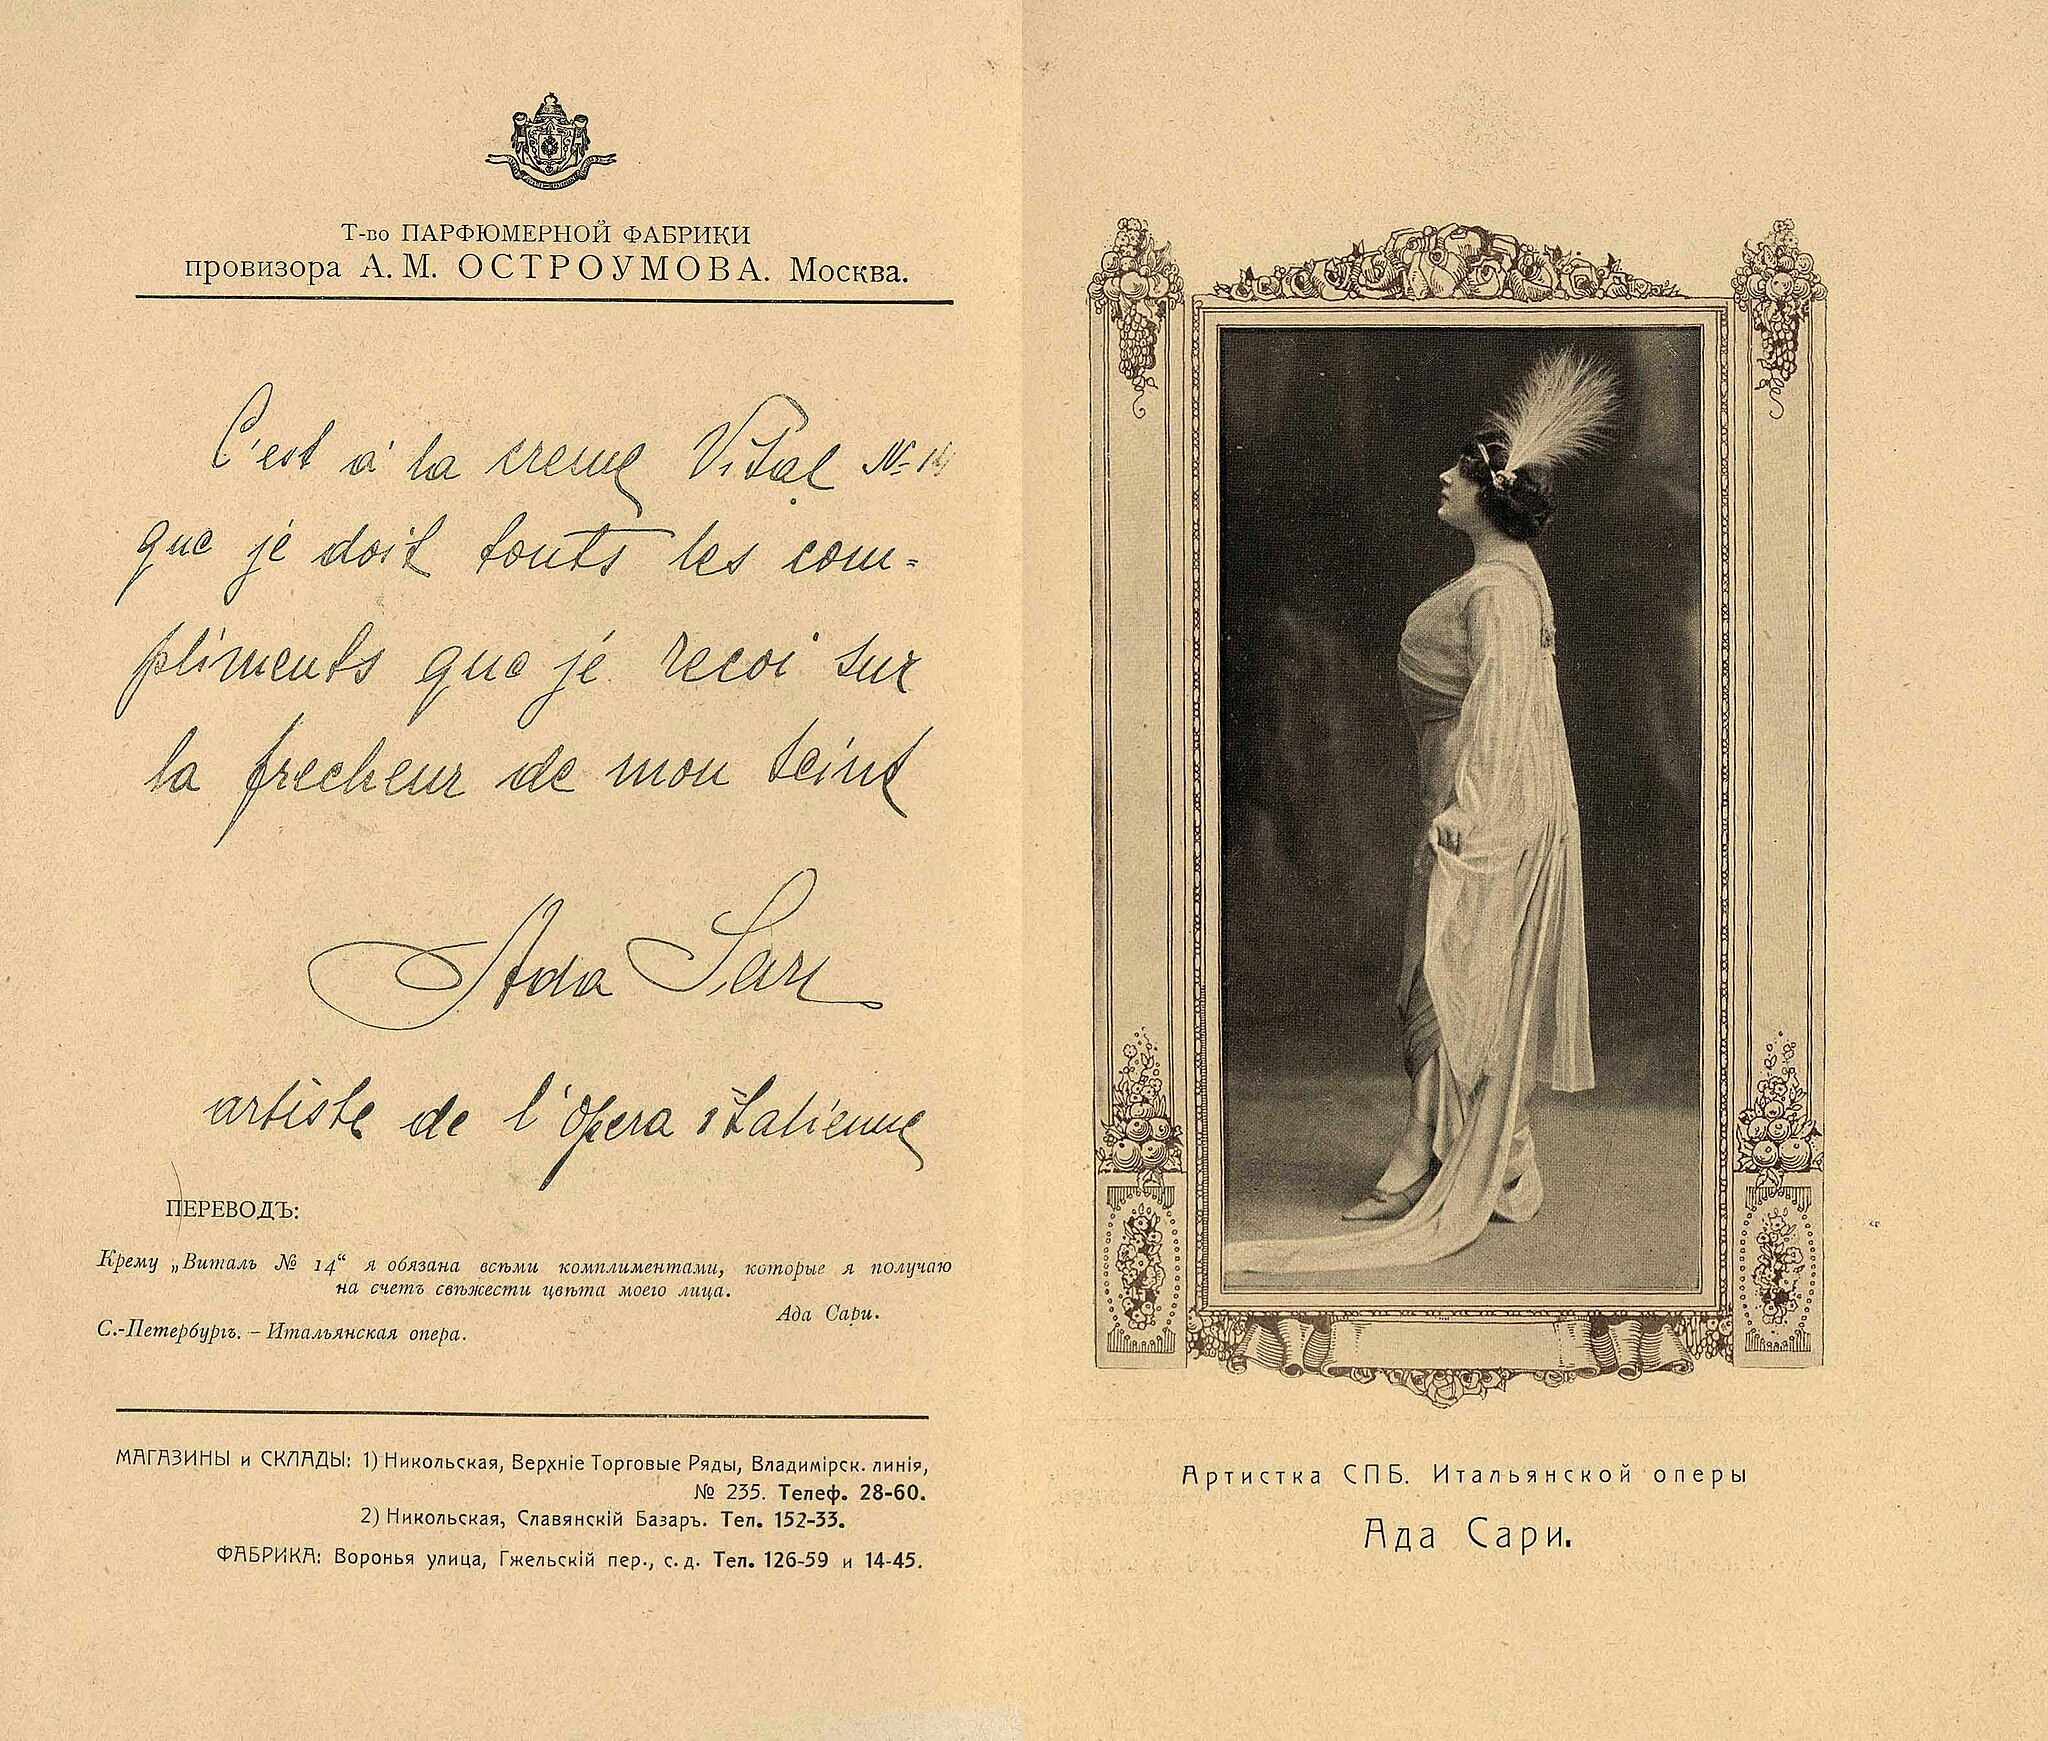 Т-во ПАРФЮМЕРНОЙ ФАБРИКИ
провизора А. М. ОСТРОУМОВА. Москва.
C'est à la creme Vital № 14
que je doit touts les com=
pliments que je recoi sur
la frecheur de mon teint
Ada Sari
artiste de l'opera italienne
ПЕРЕВОДЪ:
Крему „Виталь № 14“ я обязана всѣми комплиментами, которые я получаю
на счетъ свѣжести цвѣта моего лица.
Ада Сари.
С.-Петербургъ. – Итальянская опера.
МАГАЗИНЫ и СКЛАДЫ: 1) Никольская, Верхніе Торговые Ряды, Владимірск. линія,
№ 235. Телеф. 28-60.
2) Никольская, Славянскій Базаръ. Тел. 152-33.
ФАБРИКА: Воронья улица, Гжельскій пер., с. д. Тел. 126-59 и 14-45.
Артистка СПБ. Итальянской оперы
Ада Сари.